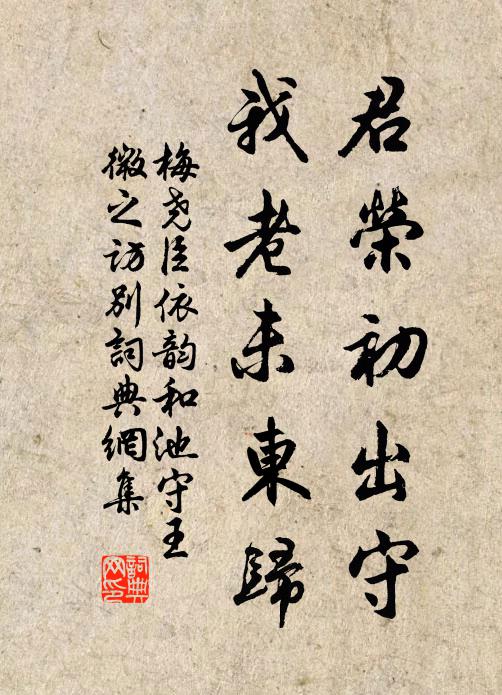 君榮初出守
我老未東歸
梅尧臣依韵和池守王
微之访别詞典網集
詞典
网印